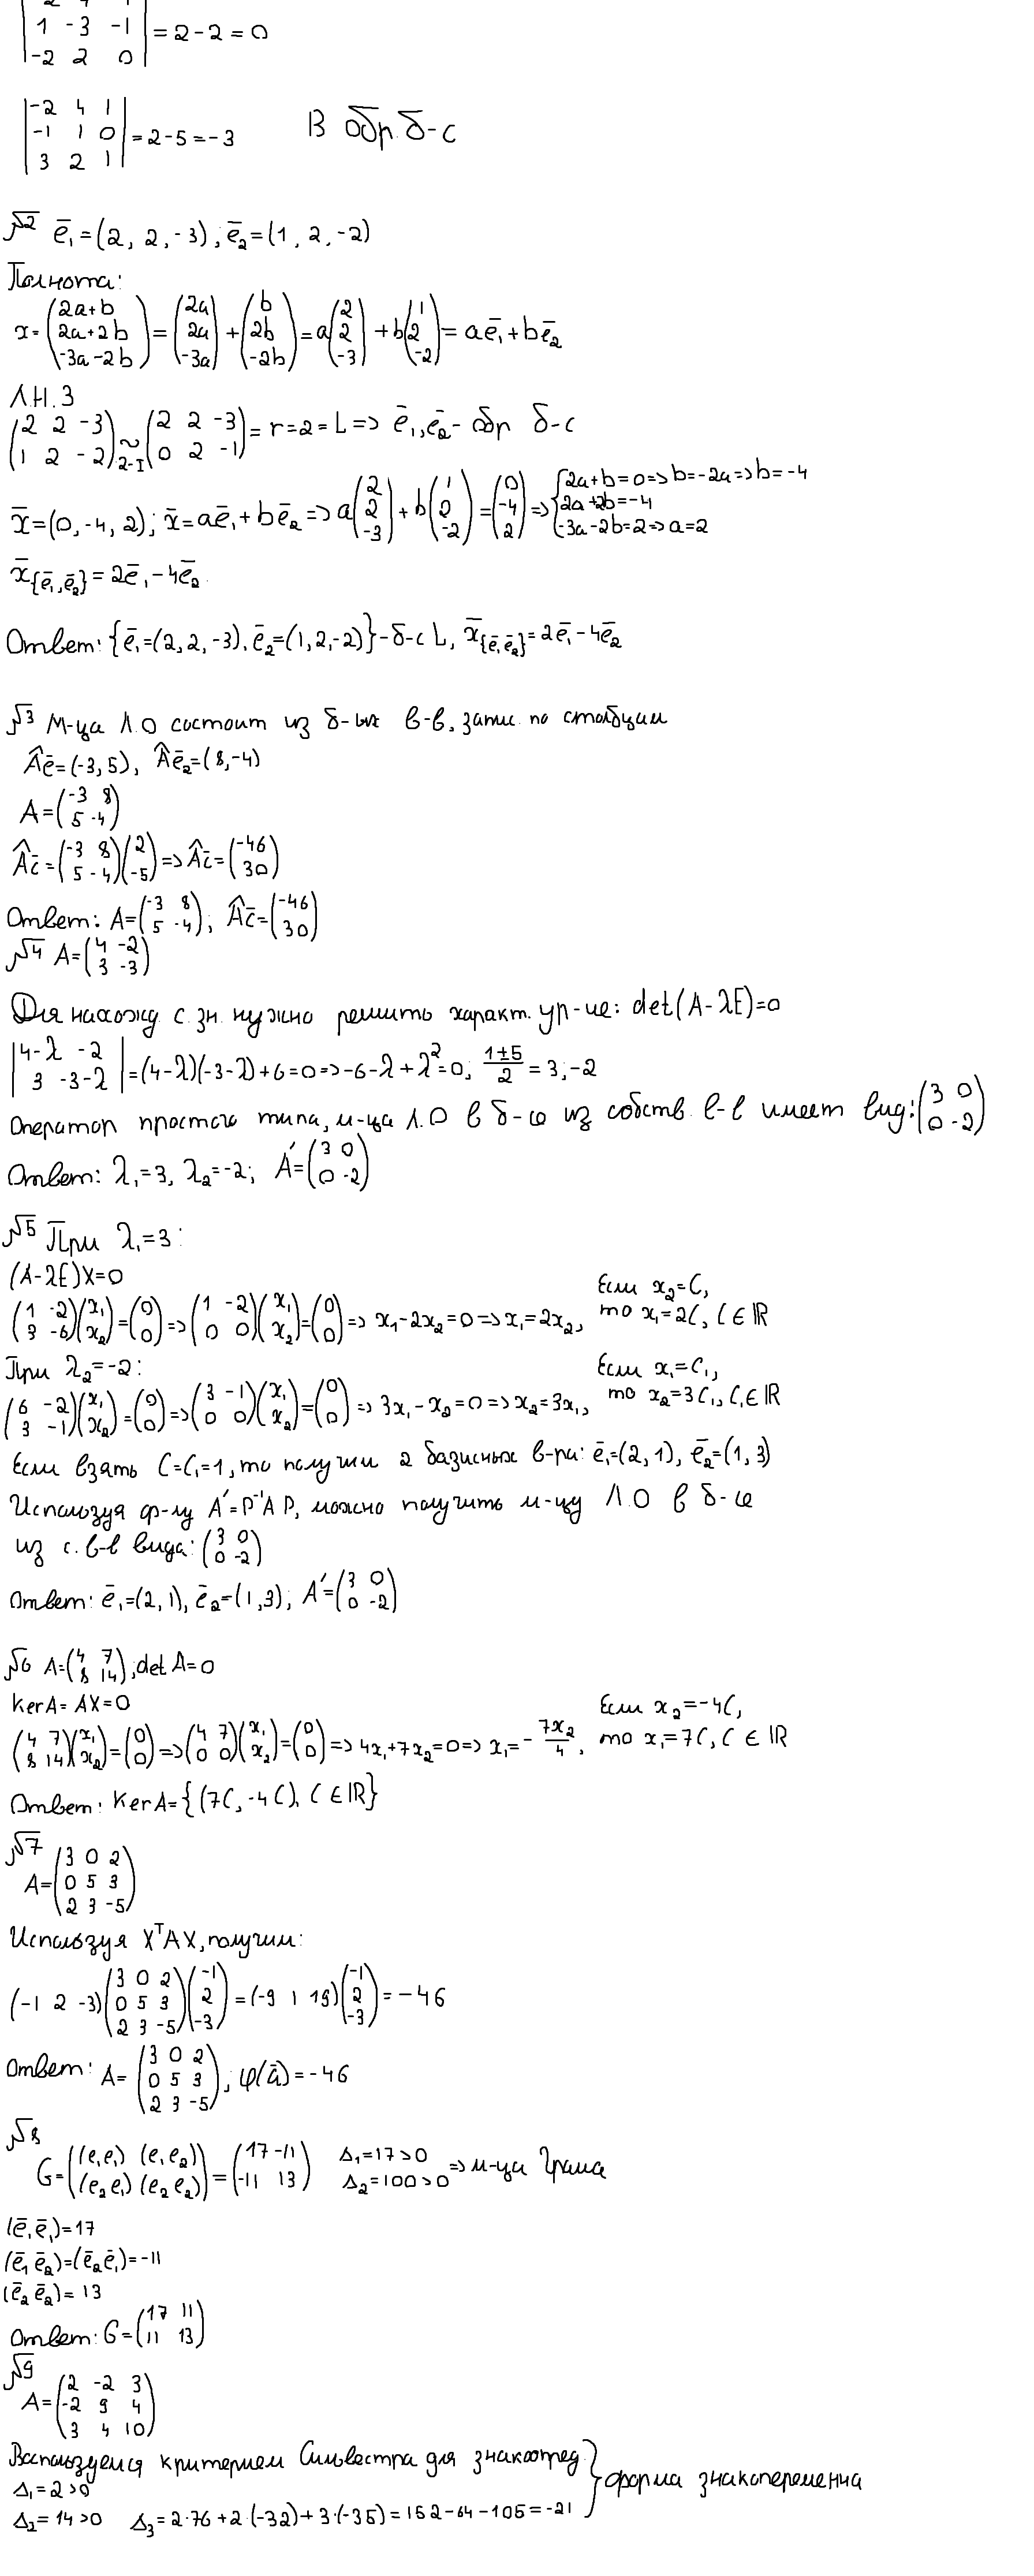 |1 -3 -1| = 2-2=0
|-2 2 0|
|-2 4 1|
|-1 1 0| = 2-5=-3 В обр. б-с
|3 2 1|
№2 ē₁=(2, 2, -3); ē₂=(1, 2, -2)
Полнота:
x=(2a+b; 2a+2b; -3a-2b)=(2a; 2a; -3a)+(b; 2b; -2b)=a(2; 2; -3)+b(1; 2; -2)=aē₁+bē₂
Л.Н.З
(2 2 -3; 1 2 -2) ~ 2-I (2 2 -3; 0 2 -1) = r=2=L=> ē₁,ē₂- обр б-с
x̄=(0,-4,2); x̄=aē₁+bē₂=>a(2; 2; -3)+b(1; 2; -2)=(0; -4; 2)=>{2a+b=0=>b=-2a=>b=-4
2a+2b=-4
-3a-2b=2=>a=2
x̄{ē₁,ē₂}=2ē₁-4ē₂
Ответ: {ē₁=(2,2,-3), ē₂=(1,2,-2)}-б-с L, x̄{ē₁,ē₂}=2ē₁-4ē₂
№3 М-ца Л.О состоит из б-ых в-в, запис. по столбцам
Âē=(-3,5), Âē₂=(8,-4)
A=(-3 8; 5 -4)
Âc̄=(-3 8; 5 -4)(2; -5)=>Âc̄=(-46; 30)
Ответ: A=(-3 8; 5 -4); Âc̄=(-46; 30)
№4 A=(4 -2; 3 -3)
Для нахожд с. зн. нужно решить характ. ур-ие: det(A-λE)=0
|4-λ -2; 3 -3-λ|=(4-λ)(-3-λ)+6=0=>-6-λ+λ²=0, (1±5)/2=3,-2
Оператор простого типа, м-ца Л.О в б-се из собств. в-в имеет вид: (3 0; 0 -2)
Ответ: λ₁=3, λ₂=-2; A'=(3 0; 0 -2)
№5 При λ₁=3:
(A-λE)X=0
(1 -2; 3 -6)(x₁; x₂)=(0; 0)=>(1 -2; 0 0)(x₁; x₂)=(0; 0)=> x₁-2x₂=0=>x₁=2x₂, Если x₂=C, то x₁=2C, C∈ℝ
При λ₂=-2:
(6 -2; 3 -1)(x₁; x₂)=(0; 0)=>(3 -1; 0 0)(x₁; x₂)=(0; 0)=> 3x₁-x₂=0=>x₂=3x₁, Если x₁=C₁, то x₂=3C₁, C₁∈ℝ
Если взять C=C₁=1, то получим 2 базисных в-ра: ē₁=(2,1), ē₂=(1,3)
Используя ф-лу A'=P⁻¹AP, можно получить м-цу Л.О в б-се
из с. в-в вида: (3 0; 0 -2)
Ответ: ē₁=(2,1), ē₂=(1,3); A'=(3 0; 0 -2)
№6 A=(4 7; 8 14); det A=0
KerA= AX=0
(4 7; 8 14)(x₁; x₂)=(0; 0)=>(4 7; 0 0)(x₁; x₂)=(0; 0)=> 4x₁+7x₂=0=> x₁=-7x₂/4, Если x₂=-4C, то x₁=7C, C∈ℝ
Ответ: KerA={(7C,-4C), C∈ℝ}
№7
A=(3 0 2; 0 5 3; 2 3 -5)
Используя XᵀAX, получим:
(-1 2 -3)(3 0 2; 0 5 3; 2 3 -5)(-1; 2; -3)=(-9 1 19)(-1; 2; -3)=-46
Ответ: A=(3 0 2; 0 5 3; 2 3 -5); φ(ā)=-46
№8
G=((e₁e₁) (e₁e₂); (e₂e₁) (e₂e₂))=(17 -11; -11 13) Δ₁=17>0 Δ₂=100>0 => м-ца Грама
(ē₁ē₁)=17
(ē₁ē₂)=(ē₂ē₁)=-11
(ē₂ē₂)=13
Ответ: G=(17 11; 11 13)
№9
A=(2 -2 3; -2 9 4; 3 4 10)
Воспользуемся критерием Сильвестра для знакоопред.
Δ₁=2>0
Δ₂=14>0 Δ₃=2·76+2·(-32)+3·(-35)=152-64-105=-21
} форма знакопеременна